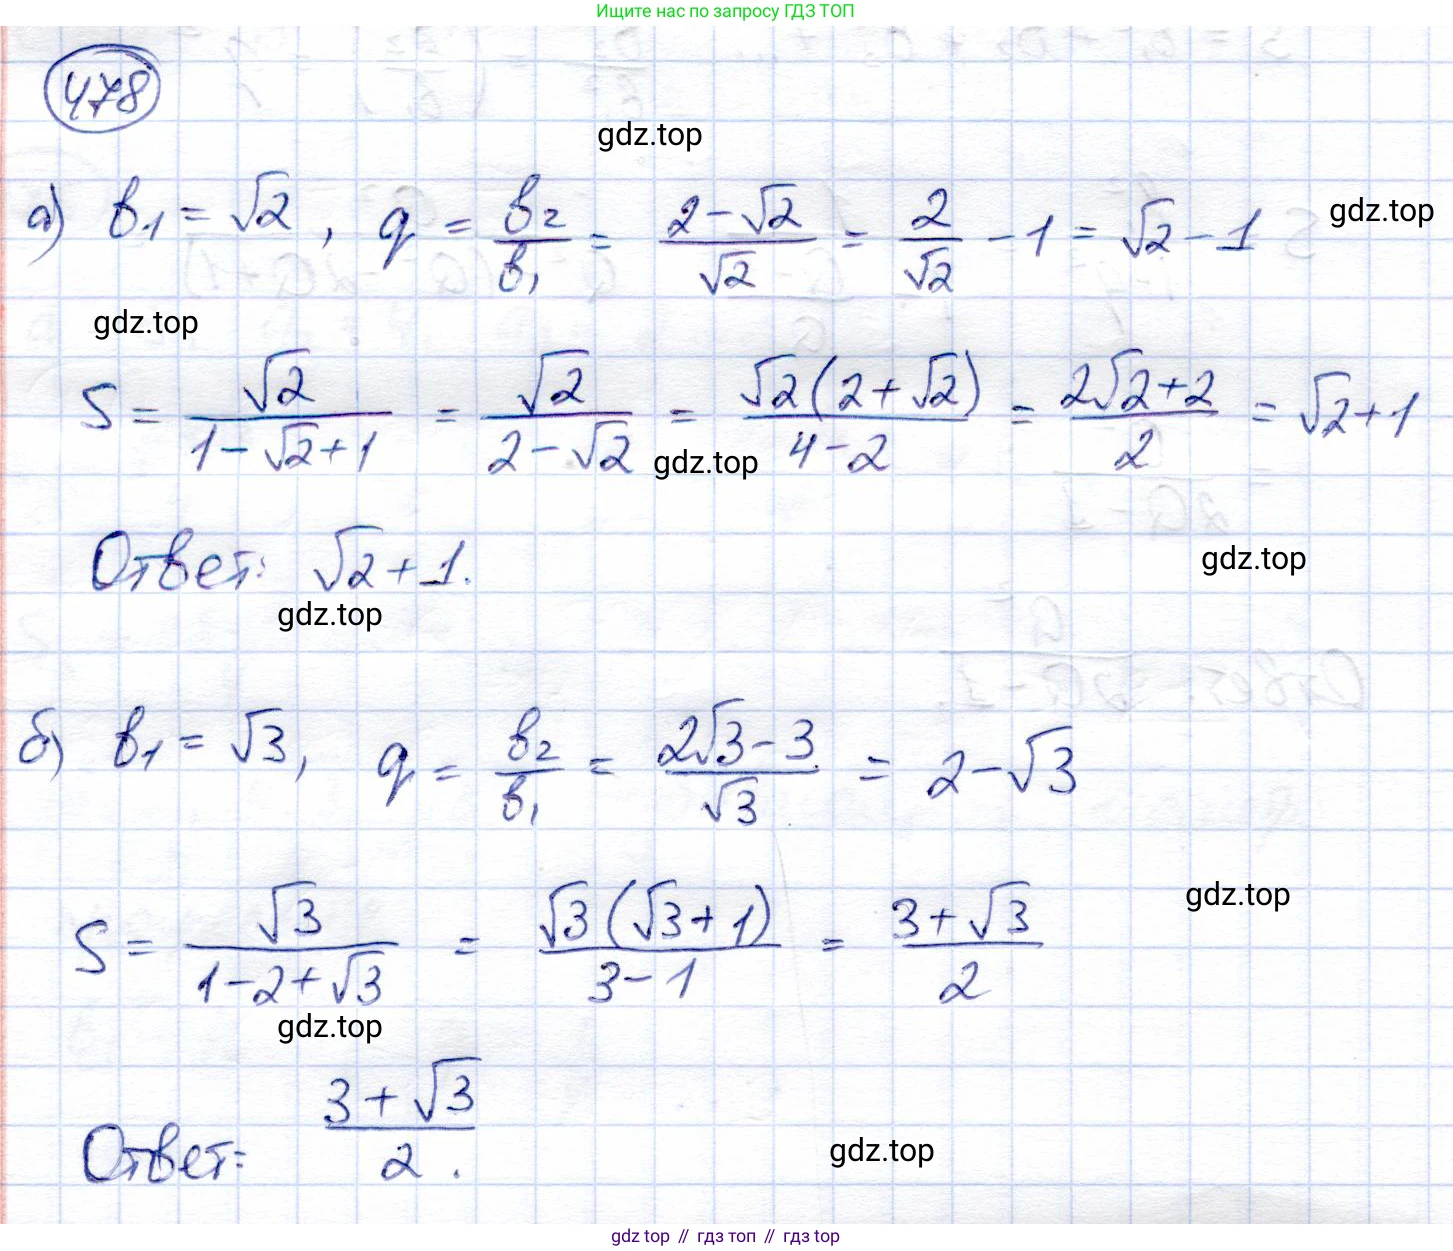 Ищите нас по запросу ГДЗ ТОП
478
gdz.top
а) b₁ = √2, q = b₂/b₁ = (2 - √2)/√2 = 2/√2 - 1 = √2 - 1
gdz.top
gdz.top
S = √2/(1 - √2 + 1) = √2/(2 - √2) = √2(2 + √2)/(4 - 2) = (2√2 + 2)/2 = √2 + 1
gdz.top
Ответ: √2 + 1.
gdz.top
gdz.top
б) b₁ = √3, q = b₂/b₁ = (2√3 - 3)/√3 = 2 - √3
S = √3/(1 - 2 + √3) = √3(√3 + 1)/(3 - 1) = (3 + √3)/2
gdz.top
gdz.top
Ответ: (3 + √3)/2.
gdz.top
gdz top // гдз топ // гдз top